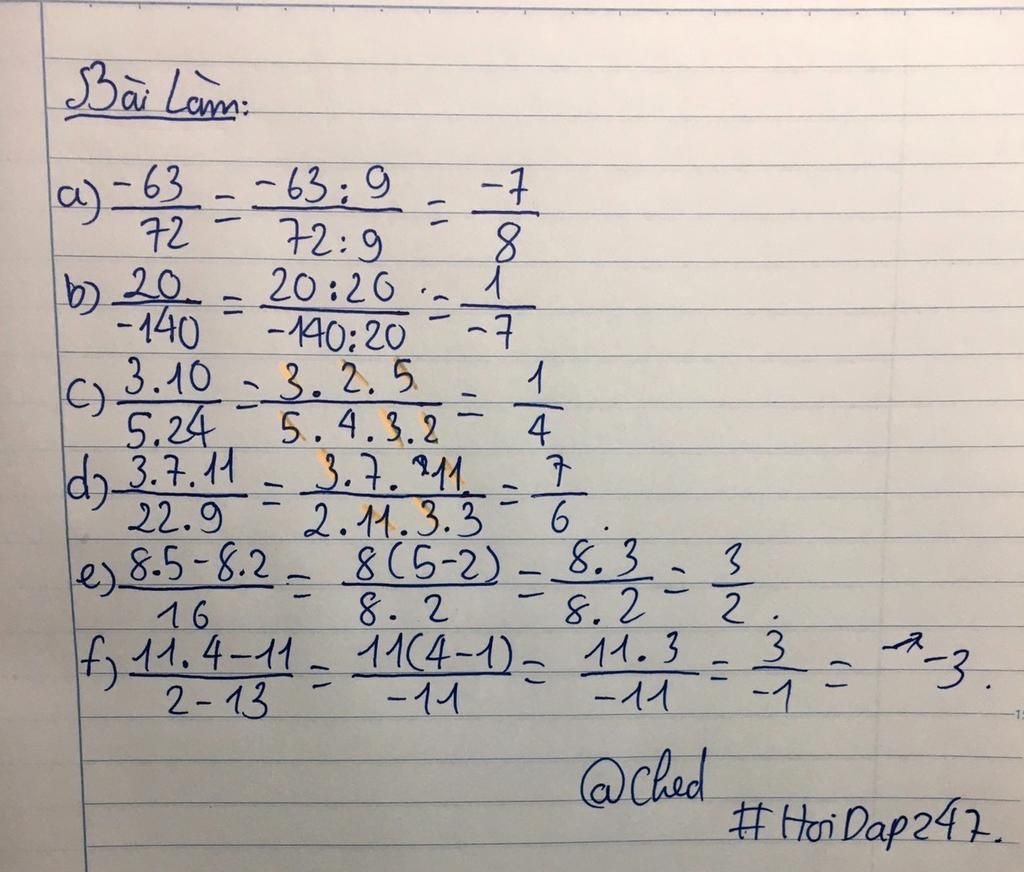 Bài Làm:
a) -63/72 = -63:9/72:9 = -7/8
b) 20/-140 = 20:20/-140:20 = 1/-7
c) 3.10/5.24 = 3.2.5/5.4.3.2 = 1/4
d) 3.7.11/22.9 = 3.7.11/2.11.3.3 = 7/6.
e) 8.5-8.2/16 = 8(5-2)/8.2 = 8.3/8.2 = 3/2.
f) 11.4-11/2-13 = 11(4-1)/-11 = 11.3/-11 = 3/-1 = -3.
@Ched
#HoiDap247.